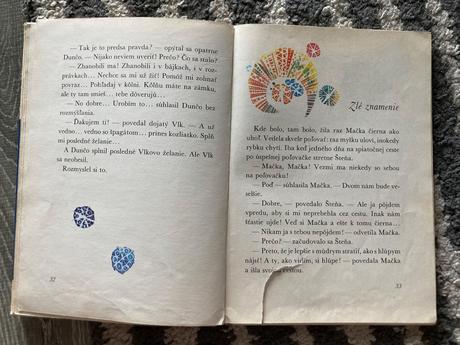 — Tak je to predsa pravda? — opýtal sa opatrne
Dunčo. — Nijako neviem uveriť! Prečo? Čo sa stalo?
— Zhanobili ma! Zhanobili i v bájkach, i v roz-
právkach... Nechce sa mi už žiť! Pomôž mi zohnať
povraz... Pohľadaj v kôlni. Kôlňu máte na zámku,
ale ty tam smieš... tebe dôverujú...
— No dobre... Urobím to... súhlasil Dunčo bez
rozmýšľania.
— Ďakujem ti! — povedal dojatý Vlk. — A už
vedno... vedno so špagátom... prines kozliatko. Splň
mi posledné želanie...
A Dunčo splnil posledné Vlkovo želanie. Ale Vlk
sa neobesil.
Rozmyslel si to.
32
Zlé znamenie
Kde bolo, tam bolo, žila raz Mačka čierna ako
uhoľ. Vedela skvele poľovať: raz myšku uloví, inokedy
rybku chytí. Iba keď jedného dňa na spiatočnej ceste
po úspešnej poľovačke stretne Šteňa.
— Mačka, Mačka! Vezmi ma niekedy so sebou na
poľovačku!
— Poď — súhlasila Mačka. — Dvom nám bude ve-
selšie.
— Dobre, — povedalo Šteňa. — Ale ja pôjdem
vpredu, aby si mi neprebehla cez cestu. Inak nám
šťastie ujde! Veď si Mačka a ešte k tomu čierna...
— Nikam ja s tebou nepôjdem! — odvrkla Mačka.
— Prečo? — začudovalo sa Šteňa.
— Preto, že je lepšie s múdrym stratiť, ako s hlúpym
nájsť! A ty, ako vidím, si hlúpe! — povedala Mačka
a išla svojou cestou.
33